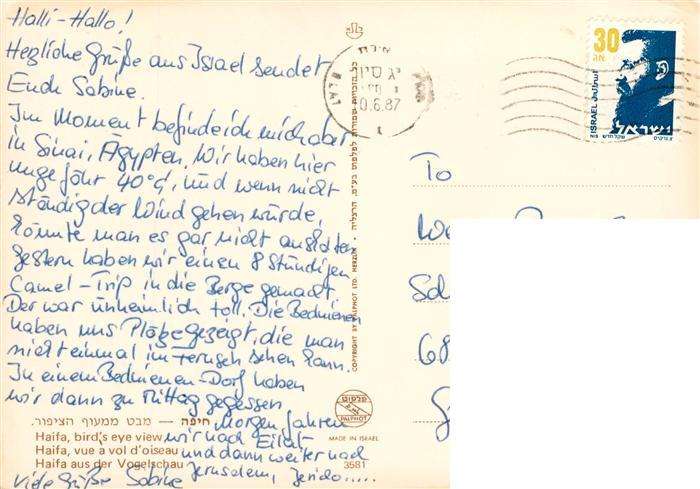 Halli-Hallo!
Herzliche Grüße aus Israel sendet
Euch Sabine.
Im Moment befinde ich mich aber
in Sinai, Ägypten. Wir haben hier
ungefähr 40°C, und wenn nicht
ständig der Wind gehen würde,
könnte man es gar nicht aushalten.
Gestern haben wir einen 8 stündigen
Camel-Trip in die Berge gemacht
Der war unheimlich toll. Die Beduinen
haben uns Plätze gezeigt, die man
nicht einmal im Fernseh sehen kann.
In einem Beduinen-Dorf haben
wir dann zu Mittag gegessen
Morgen fahren
wir nach Eilat
und dann weiter nach
Jerusalem, Jericho.....
Viele Grüße Sabine
חיפה – מבט ממעוף הציפור.
Haifa, bird's eye view
Haifa, vue a vol d'oiseau
Haifa aus der Vogelschau
3581
MADE IN ISRAEL
פלפוט
PALPHOT
COPYRIGHT BY PALPHOT LTD. HERZLIA
כל הזכויות שמורות לפלפוט בע"מ, הרצליה
אילת
יג סיון
0.6.87
ELAT
30
אג
ISRAEL
ישראל
To
68